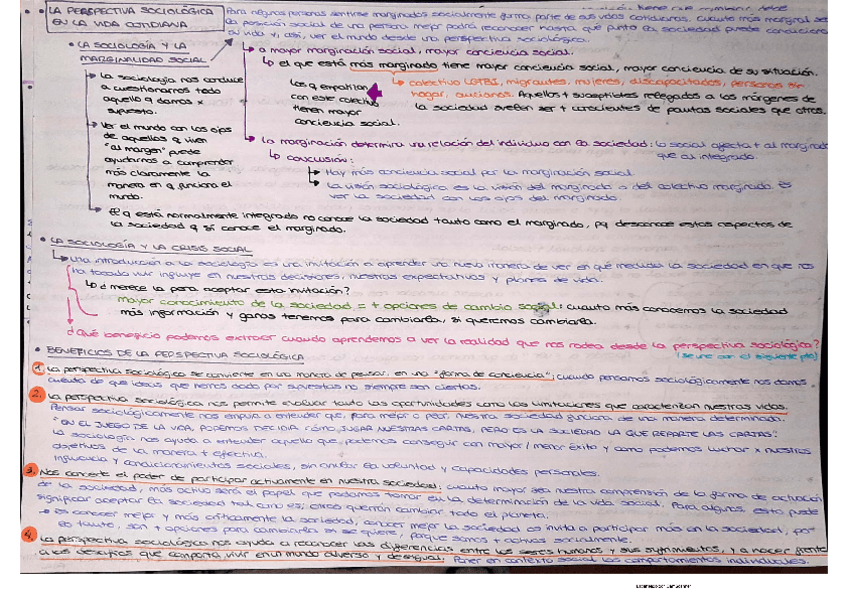 LA PERSPECTIVA SOCIOLÓGICA
EN LA VIDA COTIDIANA
Para algunas personas sentirse marginados socialmente forma parte de sus vidas cotidianas, cuanto más marginal sea
la posición social de una persona mejor podrá reconocer hasta qué punto la sociedad puede condicionar
su vida y, así, ver el mundo desde una perspectiva sociológica.
• LA SOCIOLOGÍA Y LA
MARGINALIDAD SOCIAL
a mayor marginación social, mayor conciencia social.
el que está más marginado tiene mayor conciencia social, mayor conciencia de su situación.
colectivo LGTBI, migrantes, mujeres, discapacitados, personas sin
hogar, ancianos. Aquellos + susceptibles relegados a los márgenes de
la sociedad suelen ser + conscientes de pautas sociales que otros.
Los q empatizan
con este colectivo
tienen mayor
conciencia social.
La marginación determina una relación del individuo con la sociedad: lo social afecta + al marginado
que al integrado.
CONCLUSIÓN:
Hay más conciencia social por la marginación social.
La visión sociológica es la visión del marginado o del colectivo marginado. Es
ver la sociedad con los ojos del marginado.
La sociología nos conduce
a cuestionarnos todo
aquello q damos x
supuesto.
Ver el mundo con los ojos
de aquellos q viven
"al margen" puede
ayudarnos a comprender
más claramente la
manera en q funciona el
mundo.
El q está normalmente integrado no conoce la sociedad tanto como el marginado, pq desconoce estos aspectos de
la sociedad q sí conoce el marginado.
• LA SOCIOLOGÍA Y LA CRISIS SOCIAL
Una introducción a la sociología es una invitación a aprender una nueva manera de ver en qué medida la sociedad en que nos
ha tocado vivir influye en nuestras decisiones, nuestras expectativas y planes de vida.
¿merece la pena aceptar esta invitación?
mayor conocimiento de la sociedad = + opciones de cambio social: cuanto más conocemos la sociedad
más información y ganas tenemos para cambiarla, si queremos cambiarla.
¿Qué beneficio podemos extraer cuando aprendemos a ver la realidad que nos rodea desde la perspectiva sociológica?
(se une con el siguiente pto)
• BENEFICIOS DE LA PERSPECTIVA SOCIOLÓGICA
1. La perspectiva sociológica se convierte en una manera de pensar, en una "forma de conciencia"; cuando pensamos sociológicamente nos damos
cuenta de que ideas que hemos dado por supuestas no siempre son ciertas.
2. La perspectiva sociológica nos permite evaluar tanto las oportunidades como las limitaciones que caracterizan nuestras vidas.
Pensar sociológicamente nos empuja a entender que, para mejor o peor, nuestra sociedad funciona de una manera determinada.
"EN EL JUEGO DE LA VIDA, PODEMOS DECIDIR CÓMO JUGAR NUESTRAS CARTAS, PERO ES LA SOCIEDAD LA QUE REPARTE LAS CARTAS"
La sociología nos ayuda a entender aquello que podemos conseguir con mayor / menor éxito y como podemos luchar x nuestros
objetivos de la manera + efectiva.
Influencia y condicionamientos sociales, sin anular la voluntad y capacidades personales.
3. Nos concede el poder de participar activamente en nuestra sociedad: cuanto mayor sea nuestra comprensión de la forma de actuación
de la sociedad, más activo será el papel que podamos tomar en la determinación de la vida social. Para algunos, esto puede
significar aceptar la sociedad tal como es; otros querrán cambiar todo el planeta.
es conocer mejor y más críticamente la sociedad, conocer mejor la sociedad es invita a participar más en la sociedad, por
lo tanto, son + opciones para cambiarla si se quiere, porque somos + activos socialmente.
4. La perspectiva sociológica nos ayuda a reconocer las diferencias entre los seres humanos y sus sufrimientos, y a hacer frente
a los desafíos que comporta vivir en un mundo diverso y desigual. Poner en contexto social los comportamientos individuales.